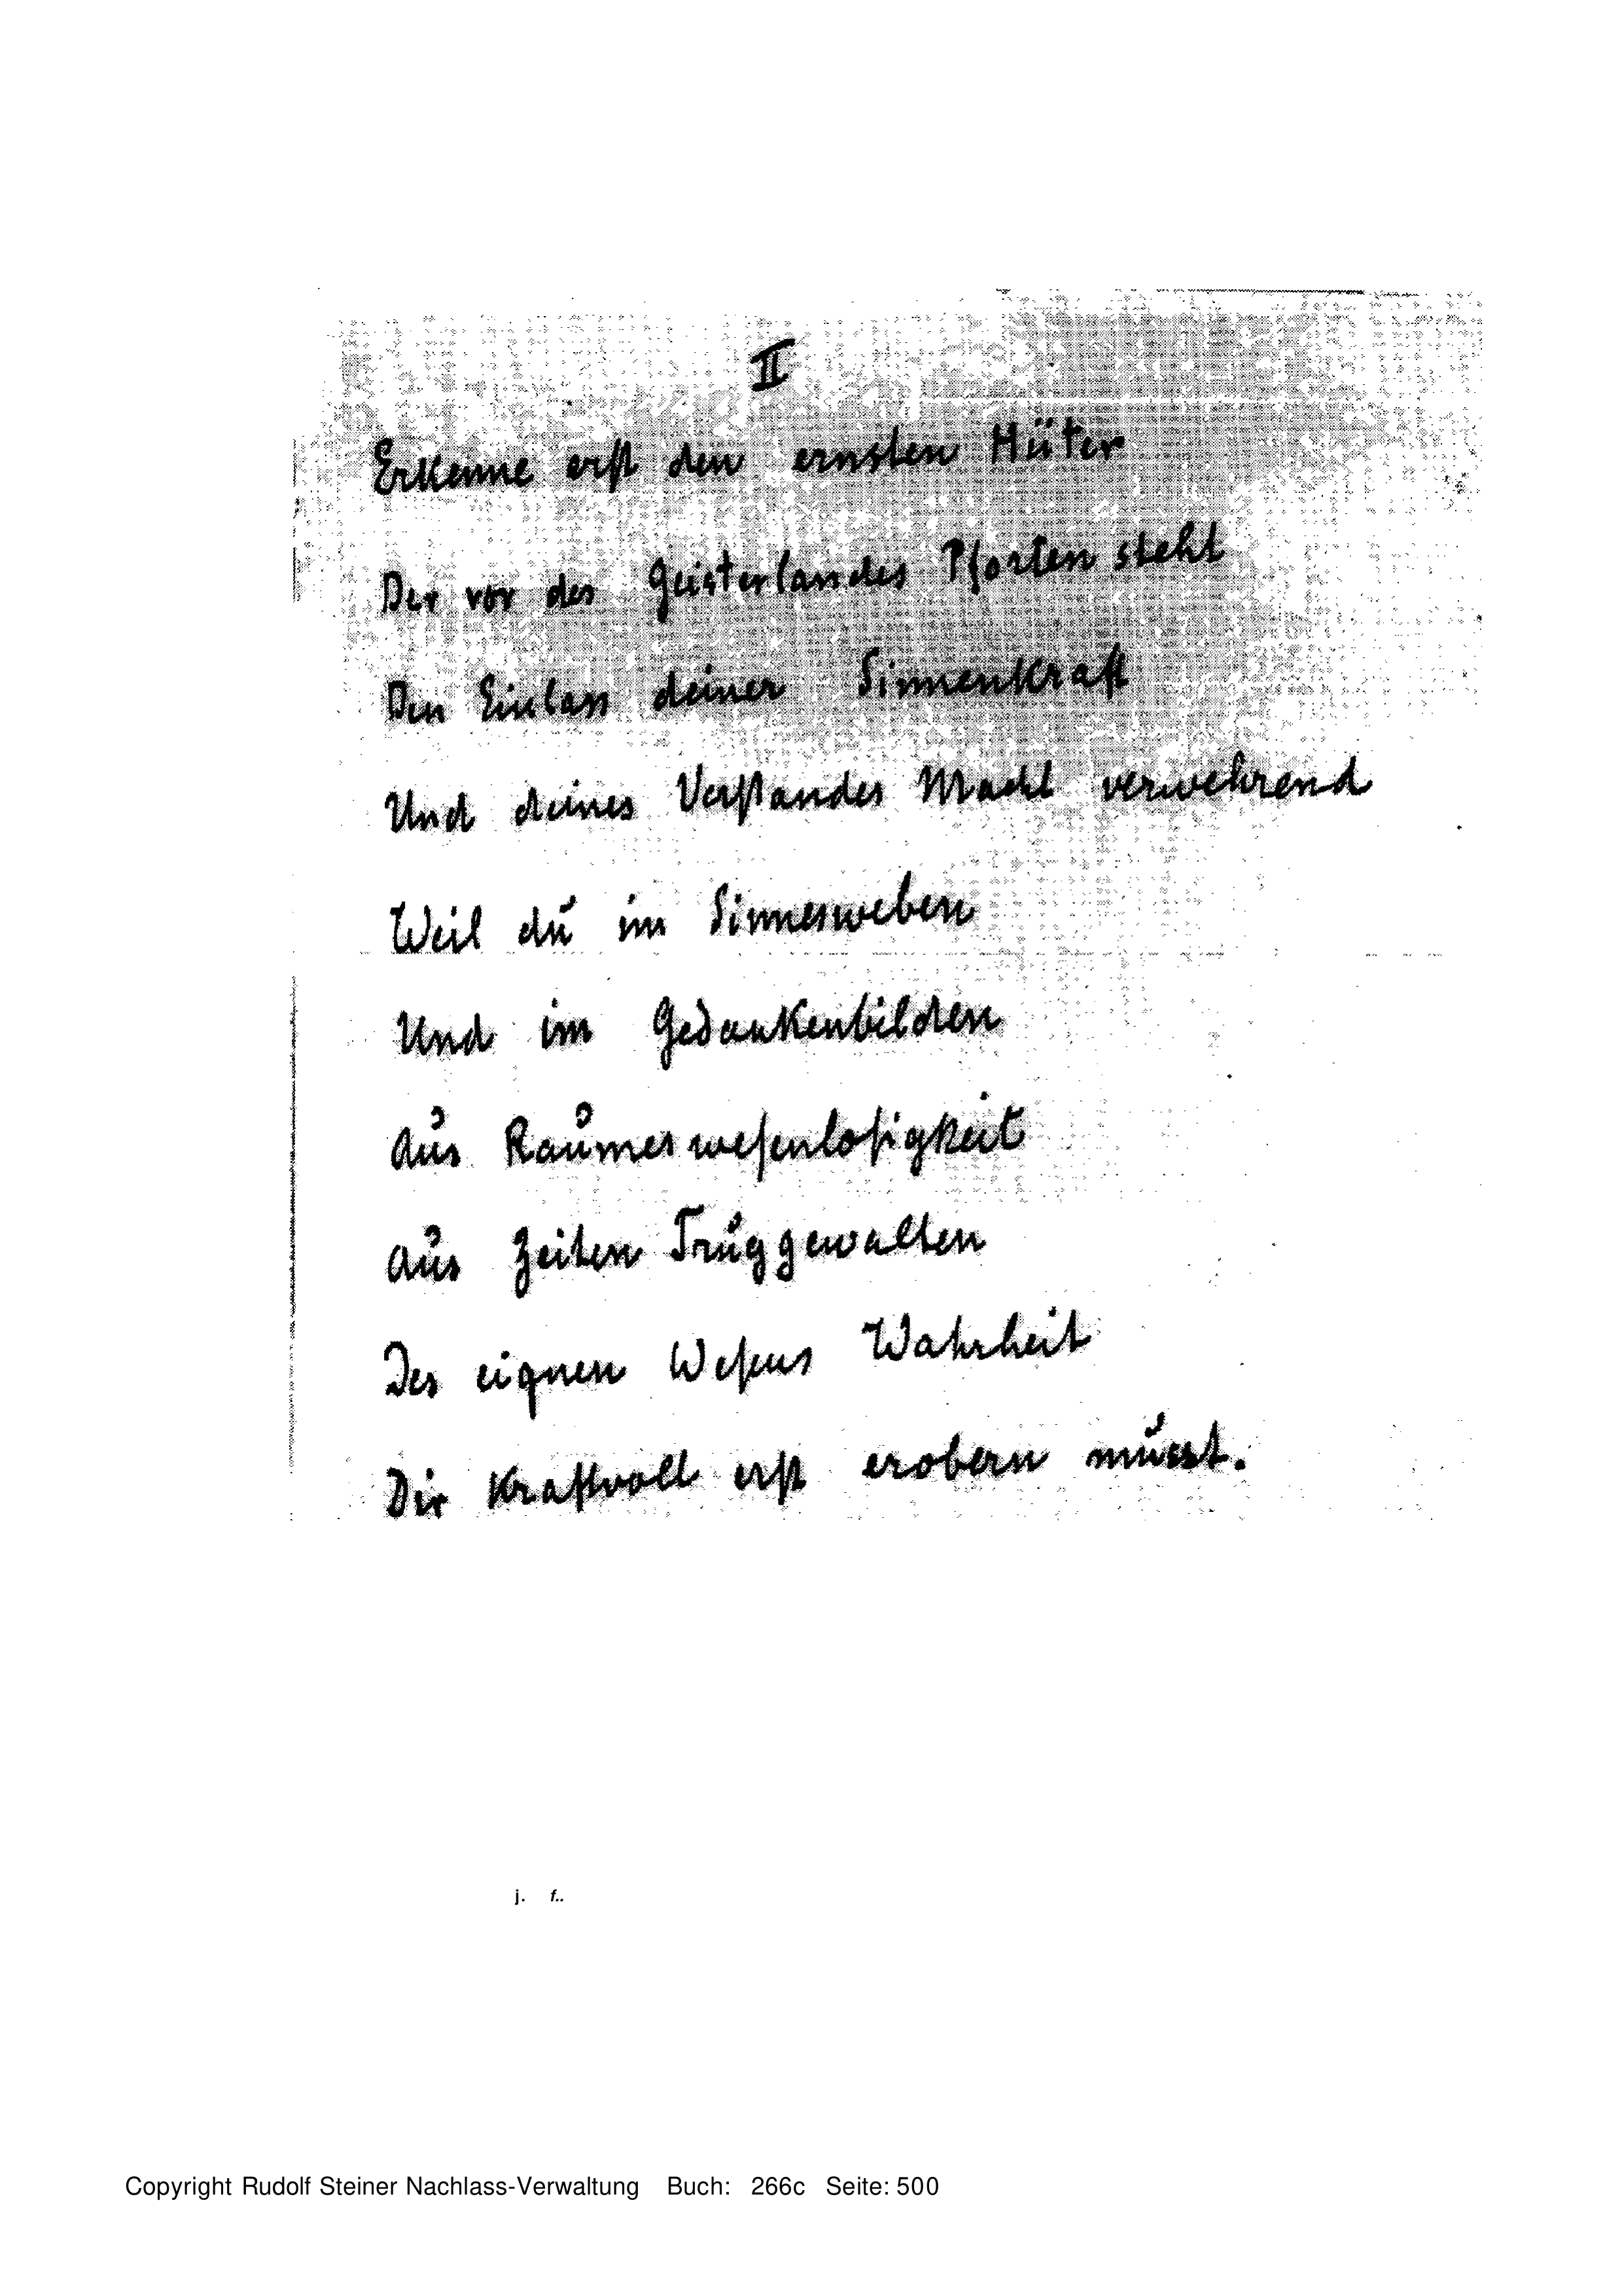 II
Erkenne erst den ernsten Hüter
Der vor des Geisterlandes Pforten steht
Den Einlass deiner Sinnenkraft
Und deines Verstandes Macht verwehrend
Weil du im Sinnesweben
Und im Gedankenbilden
Aus Raumeswesenlosigkeit
Aus Zeiten Truggewalten
Des eignen Wesens Wahrheit
Dir Kraftvoll erst erobern musst.
j. f..
Copyright Rudolf Steiner Nachlass-Verwaltung Buch: 266c Seite: 500